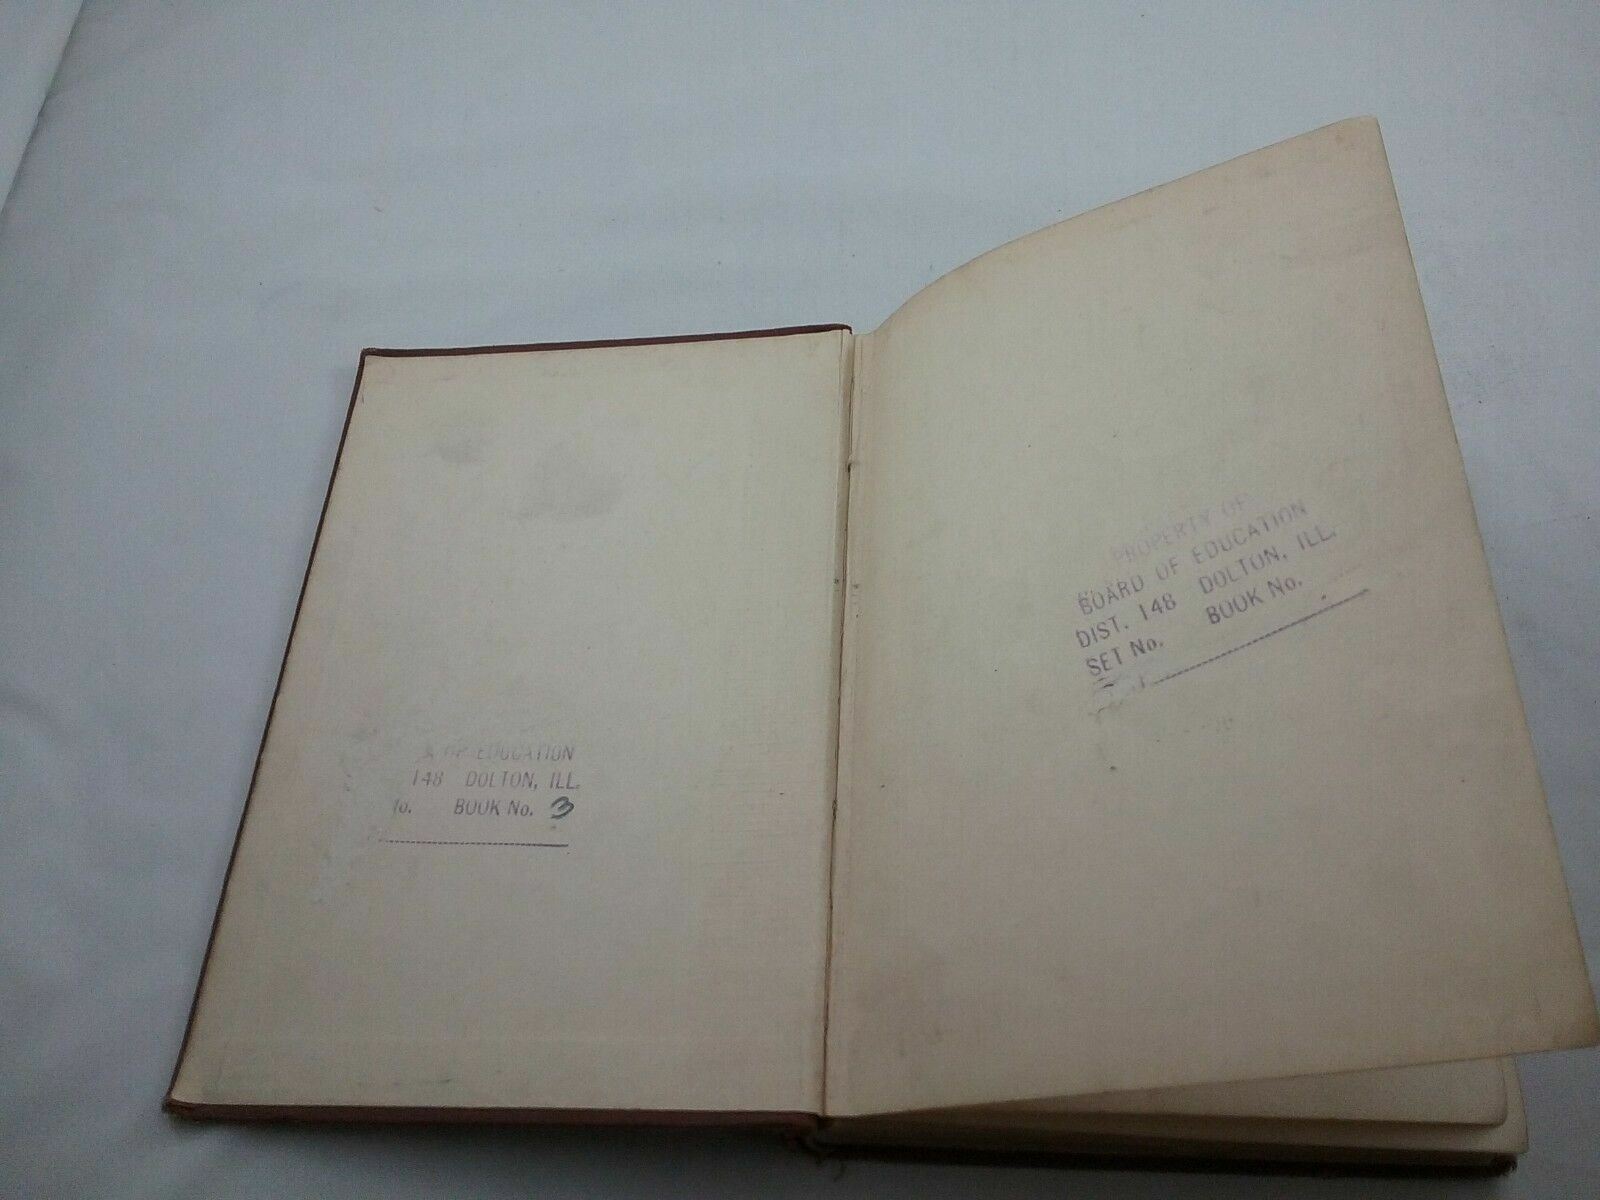 OF EDUCATION
148 DOLTON, ILL.
BOOK No. 3
PROPERTY OF
BOARD OF EDUCATION
DIST. 148 DOLTON, ILL.
SET No. BOOK No.